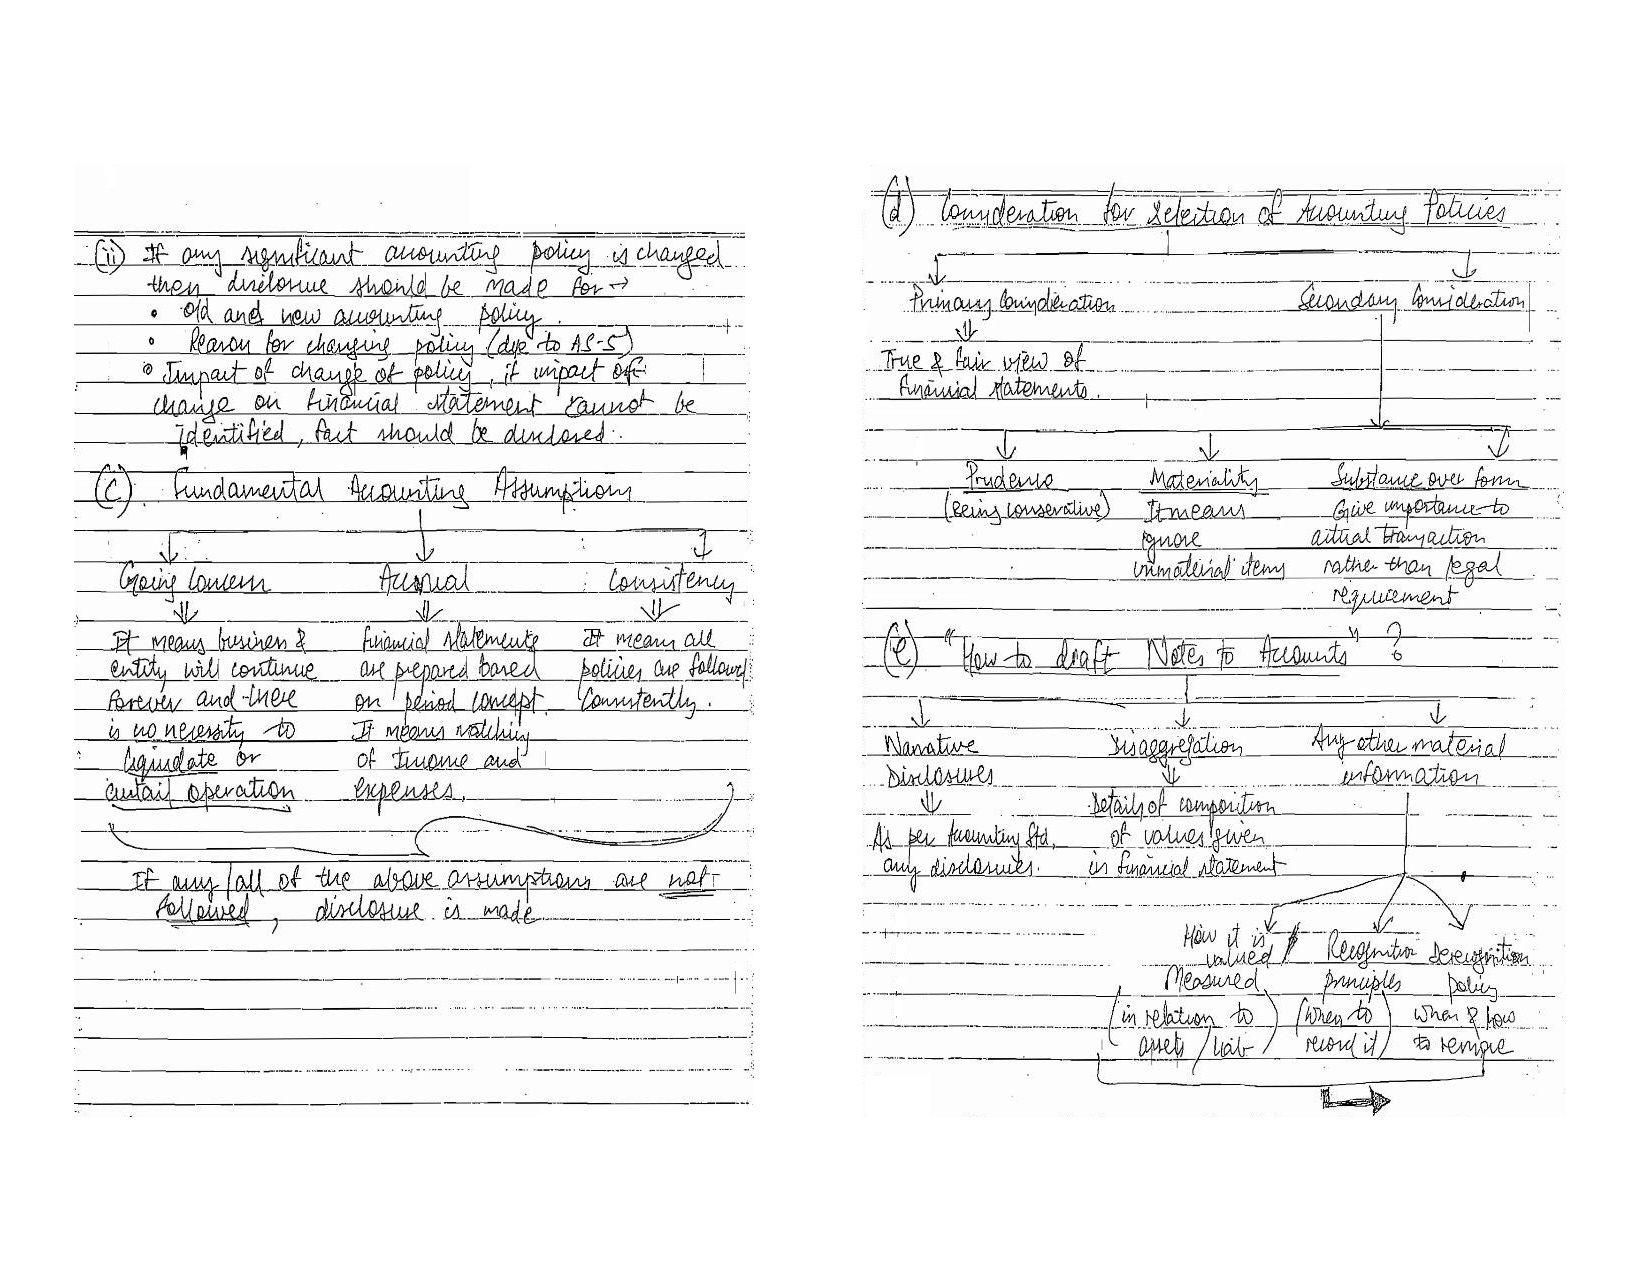 (ii) If any significant accounting policy is changed
then disclosure should be made for →
• Old and new accounting policy.
• Reason for changing policy (due to AS-5)
• Impact of change of policy, if impact of
change on financial statement cannot be
identified, fact should be disclosed.
(C). Fundamental Accounting Assumptions
Going Concern Accrual Consistency
It means business &
entity will continue
forever and there
is no necessity to
liquidate or
curtail operation
financial statements
are prepared based
on period concept.
It means matching
of Income and
expenses.
It means all
policies are followed
Consistently.
If any/all of the above assumptions are not
followed, disclosure is made
(d) Consideration for Selection of Accounting Policies
Primary Consideration Secondary Consideration
True & fair view of
financial statements.
Prudence
(Being conservative)
Materiality
It means
ignore
immaterial items
Substance over form
Give importance to
actual transaction
rather than legal
requirement
(e) "How to draft Notes to Accounts" ?
Narrative
Disclosures
As per Accounting Std,
any disclosures.
Disaggregation
Details of composition
of values given
in financial statement
Any other material
information
How it is
valued /
Measured
(in relation to
assets / liab)
Recognition
principles
(when to
record it)
Derecognition
policy
when & how
to remove